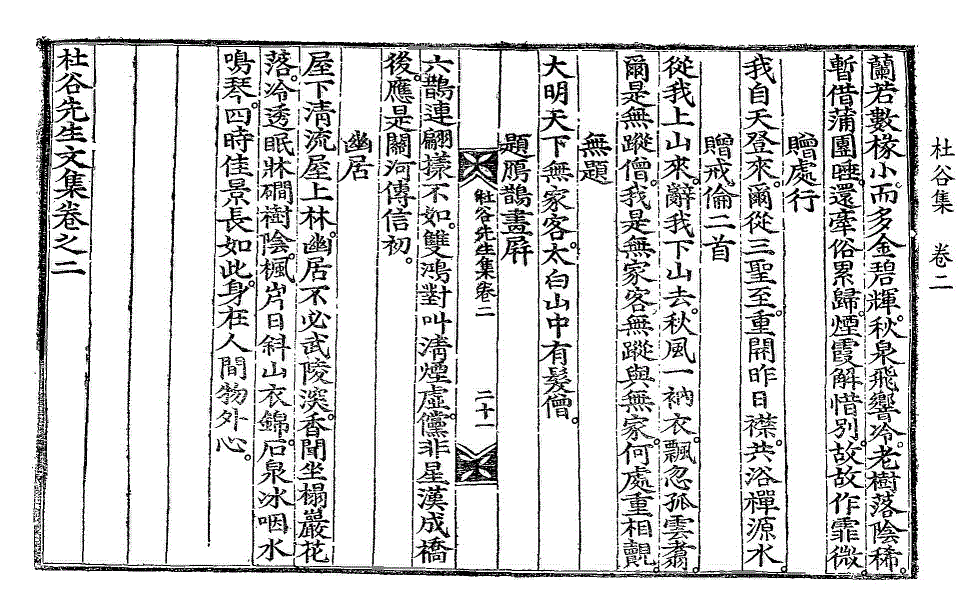 杜谷集 卷二
蘭若數椽小而多金碧輝。秋泉飛響冷。老樹落陰稀。
暫借蒲團睡。還牽俗累歸。煙霞解惜別。故故作霏微。
贈處行
我自天登來。爾從三聖至。重開昨日襟。共浴禪源水。
贈戒倫二首
從我上山來。辭我下山去。秋風一衲衣。飄忽孤雲翥。
爾是無蹤僧。我是無家客。無蹤與無家。何處重相覿。
無題
大明天下無家客。太白山中有髮僧。
題鴈鵲畫屛
杜谷先生集卷二 二十一
六鵲連翩㨾不如。雙鴻對叫淸煙虛。儻非星漢成橋
後。應是關河傳信初。
幽居
屋下淸流屋上林。幽居不必武陵深。香聞坐榻巖花
落。冷透眠牀磵樹陰。楓岸日斜山衣錦。石泉冰咽水
鳴琴。四時佳景長如此。身在人間物外心。
杜谷先生文集卷之二